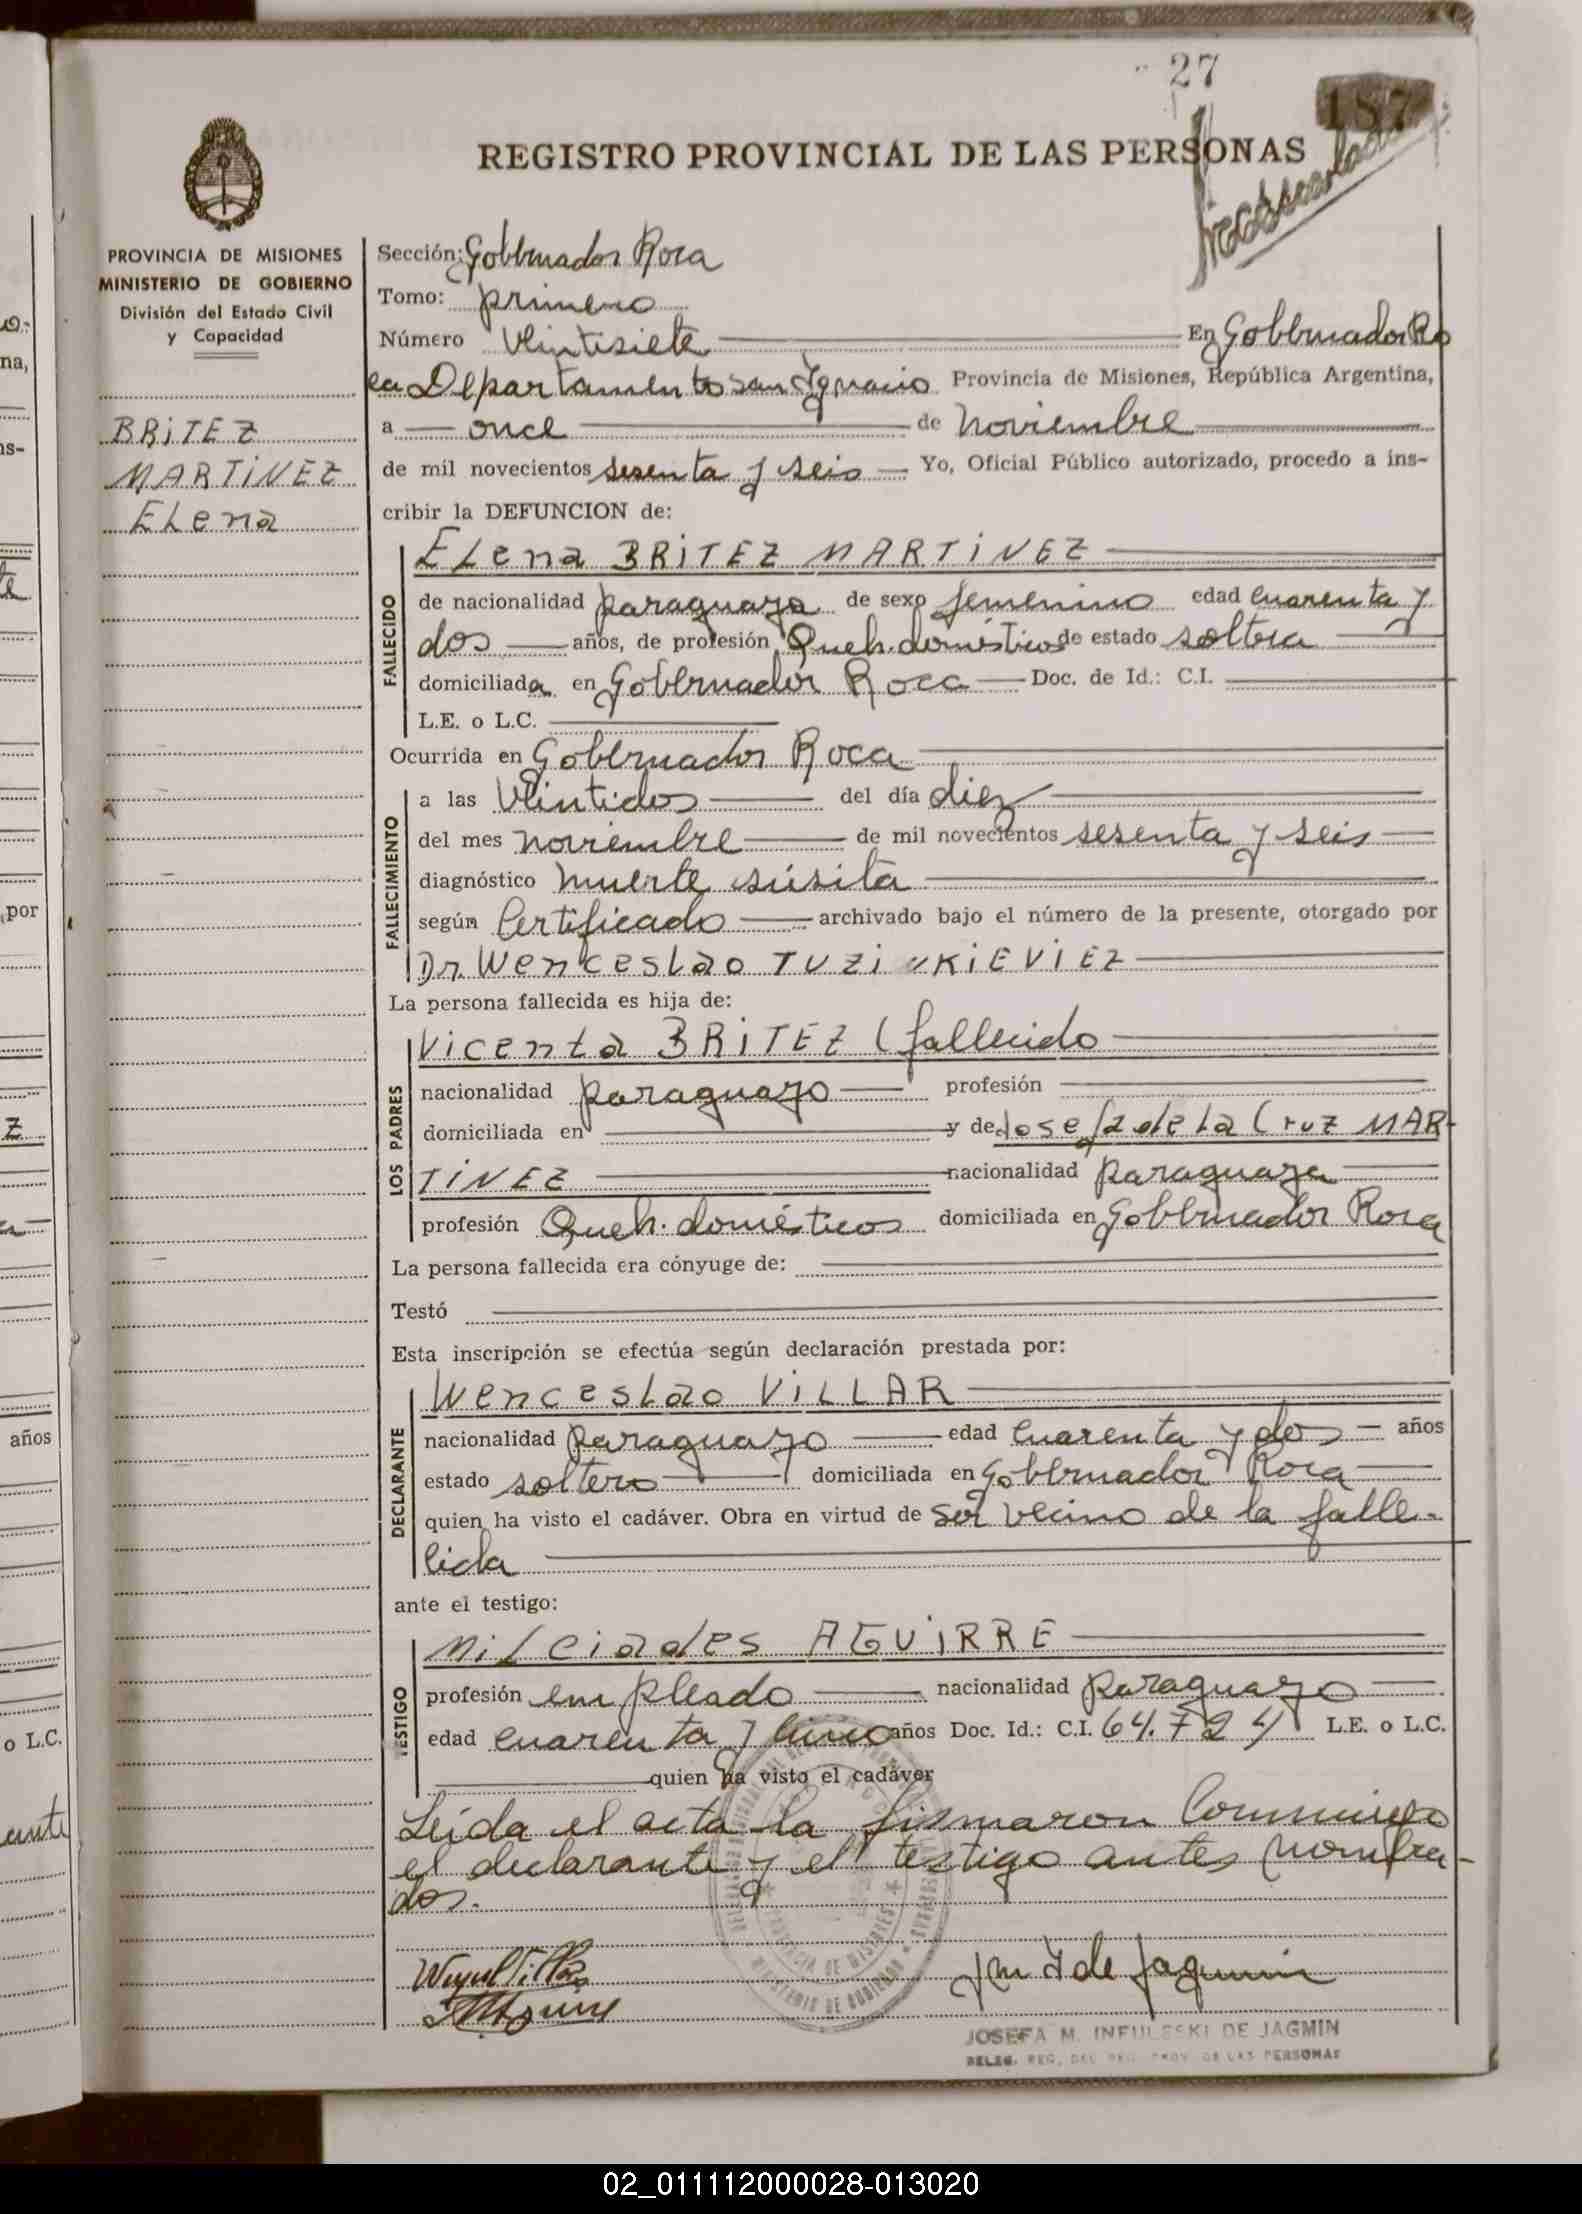 27
187
REGISTRO PROVINCIAL DE LAS PERSONAS
PROVINCIA DE MISIONES
MINISTERIO DE GOBIERNO
División del Estado Civil
y Capacidad
BRITEZ
MARTINEZ
ELena
Sección: Gobernador Roca
Tomo: primero
Número Veintisiete En Gobernador Ro
ca Departamento San Ignacio Provincia de Misiones, República Argentina,
a once de noviembre
de mil novecientos sesenta y seis Yo, Oficial Público autorizado, procedo a ins-
cribir la DEFUNCION de:
FALLECIDO
ELena BRITEZ MARTINEZ
de nacionalidad paraguaya de sexo femenino edad cuarenta y
dos años, de profesión Queh. domésticos de estado soltera
domiciliada en Gobernador Roca Doc. de Id.: C.I.
L.E. o L.C.
Ocurrida en Gobernador Roca
FALLECIMIENTO
a las Veintidos del día diez
del mes noviembre de mil novecientos sesenta y seis
diagnóstico muerte súsita
según Certificado archivado bajo el número de la presente, otorgado por
Dr. WenceSLao
La persona fallecida es hija de:
LOS PADRES
Vicenta BRITEZ (fallecido
nacionalidad paraguayo profesión
domiciliada en y de Josefa de La Cruz MAR-
TINEZ nacionalidad paraguaya
profesión Queh. domésticos domiciliada en Gobernador Roca
La persona fallecida era cónyuge de:
Testó
Esta inscripción se efectúa según declaración prestada por:
DECLARANTE
WenceSLao VILLAR
nacionalidad paraguayo edad cuarenta y dos años
estado soltero domiciliada en Gobernador Roca
quien ha visto el cadáver. Obra en virtud de ser vecino de la falle-
cida
ante el testigo:
TESTIGO
MiLciades AGUIRRE
profesión empleado nacionalidad paraguayo
edad cuarenta y cinco años Doc. Id.: C.I. 64.724 L.E. o L.C.
quien ha visto el cadáver
Leída el acta la firmaron conmigo
el declarante y el testigo antes nombra-
dos.
JOSEFA M. INFULESKI DE JAGMIN
DELEG. REG. DEL REG. PROV. DE LAS PERSONAS
PROVINCIA DE MISIONES
MINISTERIO DE GOBIERNO
na,
por
años
o L.C.
02_011112000028-013020